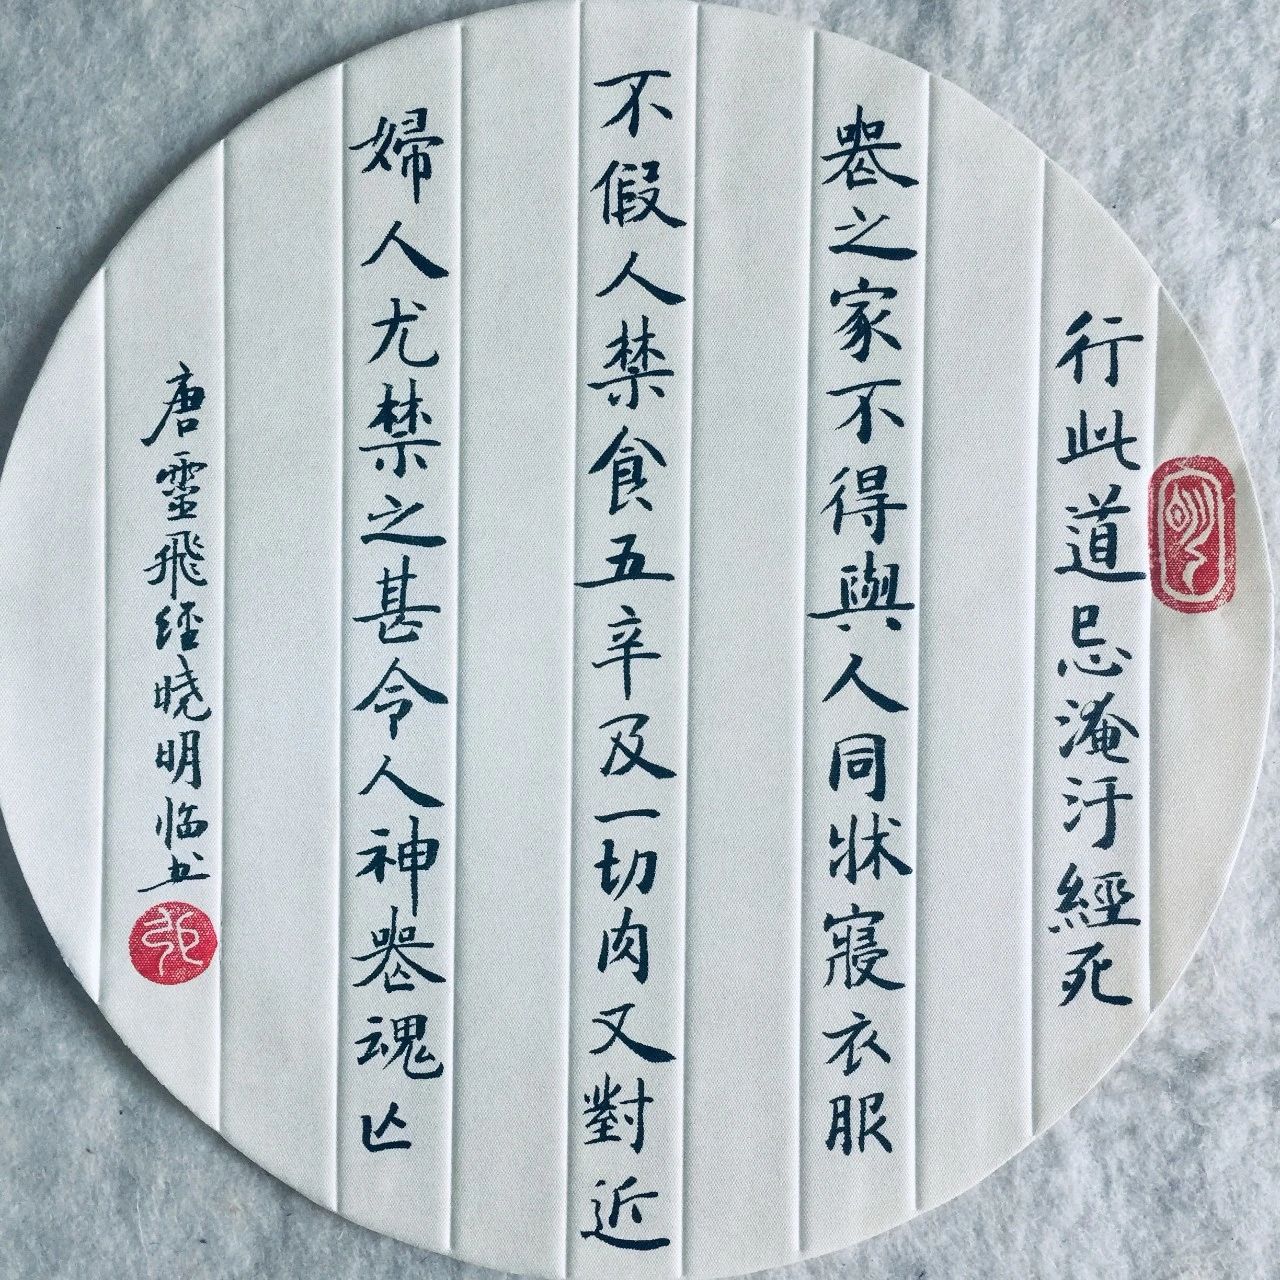 行此道忌淹汙經死
喪之家不得與人同牀寢衣服
不假人禁食五辛及一切肉又對近
婦人尤禁之甚令人神喪魂亡
唐靈飛經晓明临书